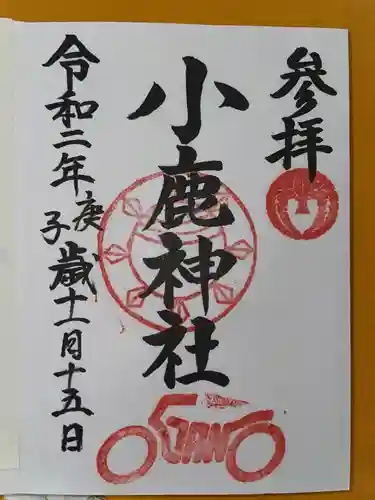 參拝
小鹿神社
令和二年庚子歳十一月十五日